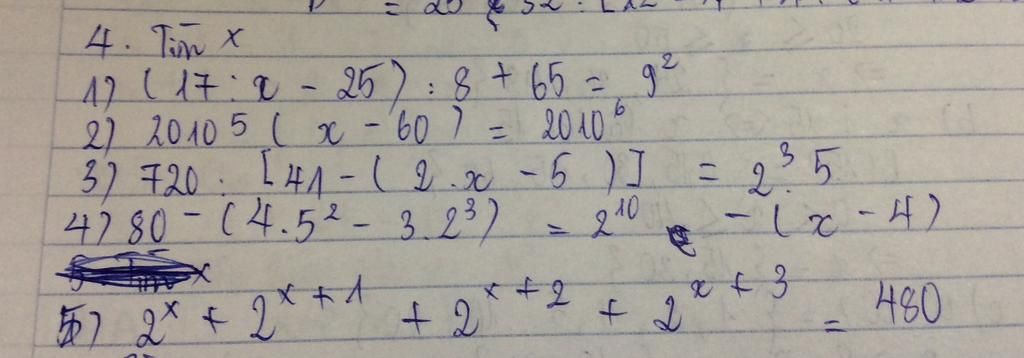 = 25
4. Tìm x
1) (17 : x - 25) : 8 + 65 = 9²
2) 2010⁵ ( x - 60 ) = 2010⁶
3) 720 : [41 - ( 2 . x - 5 )] = 2³. 5
4) 80 - (4.5² - 3.2³) = 2¹⁰ - (x - 4)
5) 2ˣ + 2ˣ⁺¹ + 2ˣ⁺² + 2ˣ⁺³ = 480